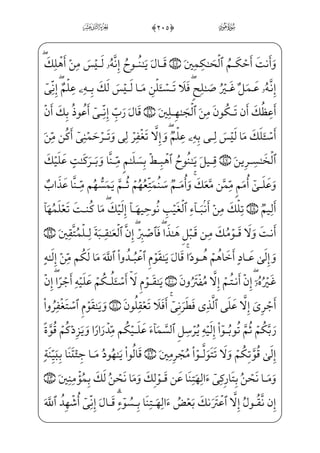 سُورَةُ هُودٍ ﴿٢٠٥﴾ الجُزْءُ الثَّانِي عَشَرَ
وَأَنتَ أَحْكَمُ ٱلْحَـٰكِمِينَ ﴿٤٥﴾ قَالَ يَـٰنُوحُ إِنَّهُۥ لَيْسَ مِنْ أَهْلِكَ ۖ
إِنَّهُۥ عَمَلٌ غَيْرُ صَـٰلِحٍ ۖ فَلَا تَسْـَٔلْنِ مَا لَيْسَ لَكَ بِهِۦ عِلْمٌ ۖ إِنِّىٓ
أَعِظُكَ أَن تَكُونَ مِنَ ٱلْجَـٰهِلِينَ ﴿٤٦﴾ قَالَ رَبِّ إِنِّىٓ أَعُوذُ بِكَ أَنْ
أَسْـَٔلَكَ مَا لَيْسَ لِى بِهِۦ عِلْمٌ ۖ وَإِلَّا تَغْفِرْ لِى وَتَرْحَمْنِىٓ أَكُن مِّنَ
ٱلْخَـٰسِرِينَ ﴿٤٧﴾ قِيلَ يَـٰنُوحُ ٱهْبِطْ بِسَلَـٰمٍ مِّنَّا وَبَرَكَـٰتٍ عَلَيْكَ
وَعَلَىٰٓ أُمَمٍ مِّمَّن مَّعَكَ ۚ وَأُمَمٌ سَنُمَتِّعُهُمْ ثُمَّ يَمَسُّهُم مِّنَّا عَذَابٌ
أَلِيمٌ ﴿٤٨﴾ تِلْكَ مِنْ أَنۢبَآءِ ٱلْغَيْبِ نُوحِيهَآ إِلَيْكَ ۖ مَا كُنتَ تَعْلَمُهَآ
أَنتَ وَلَا قَوْمُكَ مِن قَبْلِ هَـٰذَا ۖ فَٱصْبِرْ ۖ إِنَّ ٱلْعَـٰقِبَةَ لِلْمُتَّقِينَ ﴿٤٩﴾
وَإِلَىٰ عَادٍ أَخَاهُمْ هُودًا ۚ قَالَ يَـٰقَوْمِ ٱعْبُدُوا۟ ٱللَّهَ مَا لَكُم مِّنْ إِلَـٰهٍ
غَيْرُهُۥٓ ۖ إِنْ أَنتُمْ إِلَّا مُفْتَرُونَ ﴿٥٠﴾ يَـٰقَوْمِ لَآ أَسْـَٔلُكُمْ عَلَيْهِ أَجْرًا ۖ إِنْ
أَجْرِىَ إِلَّا عَلَى ٱلَّذِى فَطَرَنِىٓ ۚ أَفَلَا تَعْقِلُونَ ﴿٥١﴾ وَيَـٰقَوْمِ ٱسْتَغْفِرُوا۟
رَبَّكُمْ ثُمَّ تُوبُوٓا۟ إِلَيْهِ يُرْسِلِ ٱلسَّمَآءَ عَلَيْكُم مِّدْرَارًا وَيَزِدْكُمْ قُوَّةً
إِلَىٰ قُوَّتِكُمْ وَلَا تَتَوَلَّوْا۟ مُجْرِمِينَ ﴿٥٢﴾ قَالُوا۟ يَـٰهُودُ مَا جِئْتَنَا بِبَيِّنَةٍ
وَمَا نَحْنُ بِتَارِكِىٓ ءَالِهَتِنَا عَن قَوْلِكَ وَمَا نَحْنُ لَكَ بِمُؤْمِنِينَ ﴿٥٣﴾
إِن نَّقُولُ إِلَّا ٱعْتَرَىٰكَ بَعْضُ ءَالِهَتِنَا بِسُوٓءٍ ۗ قَالَ إِنِّىٓ أُشْهِدُ ٱللَّهَ